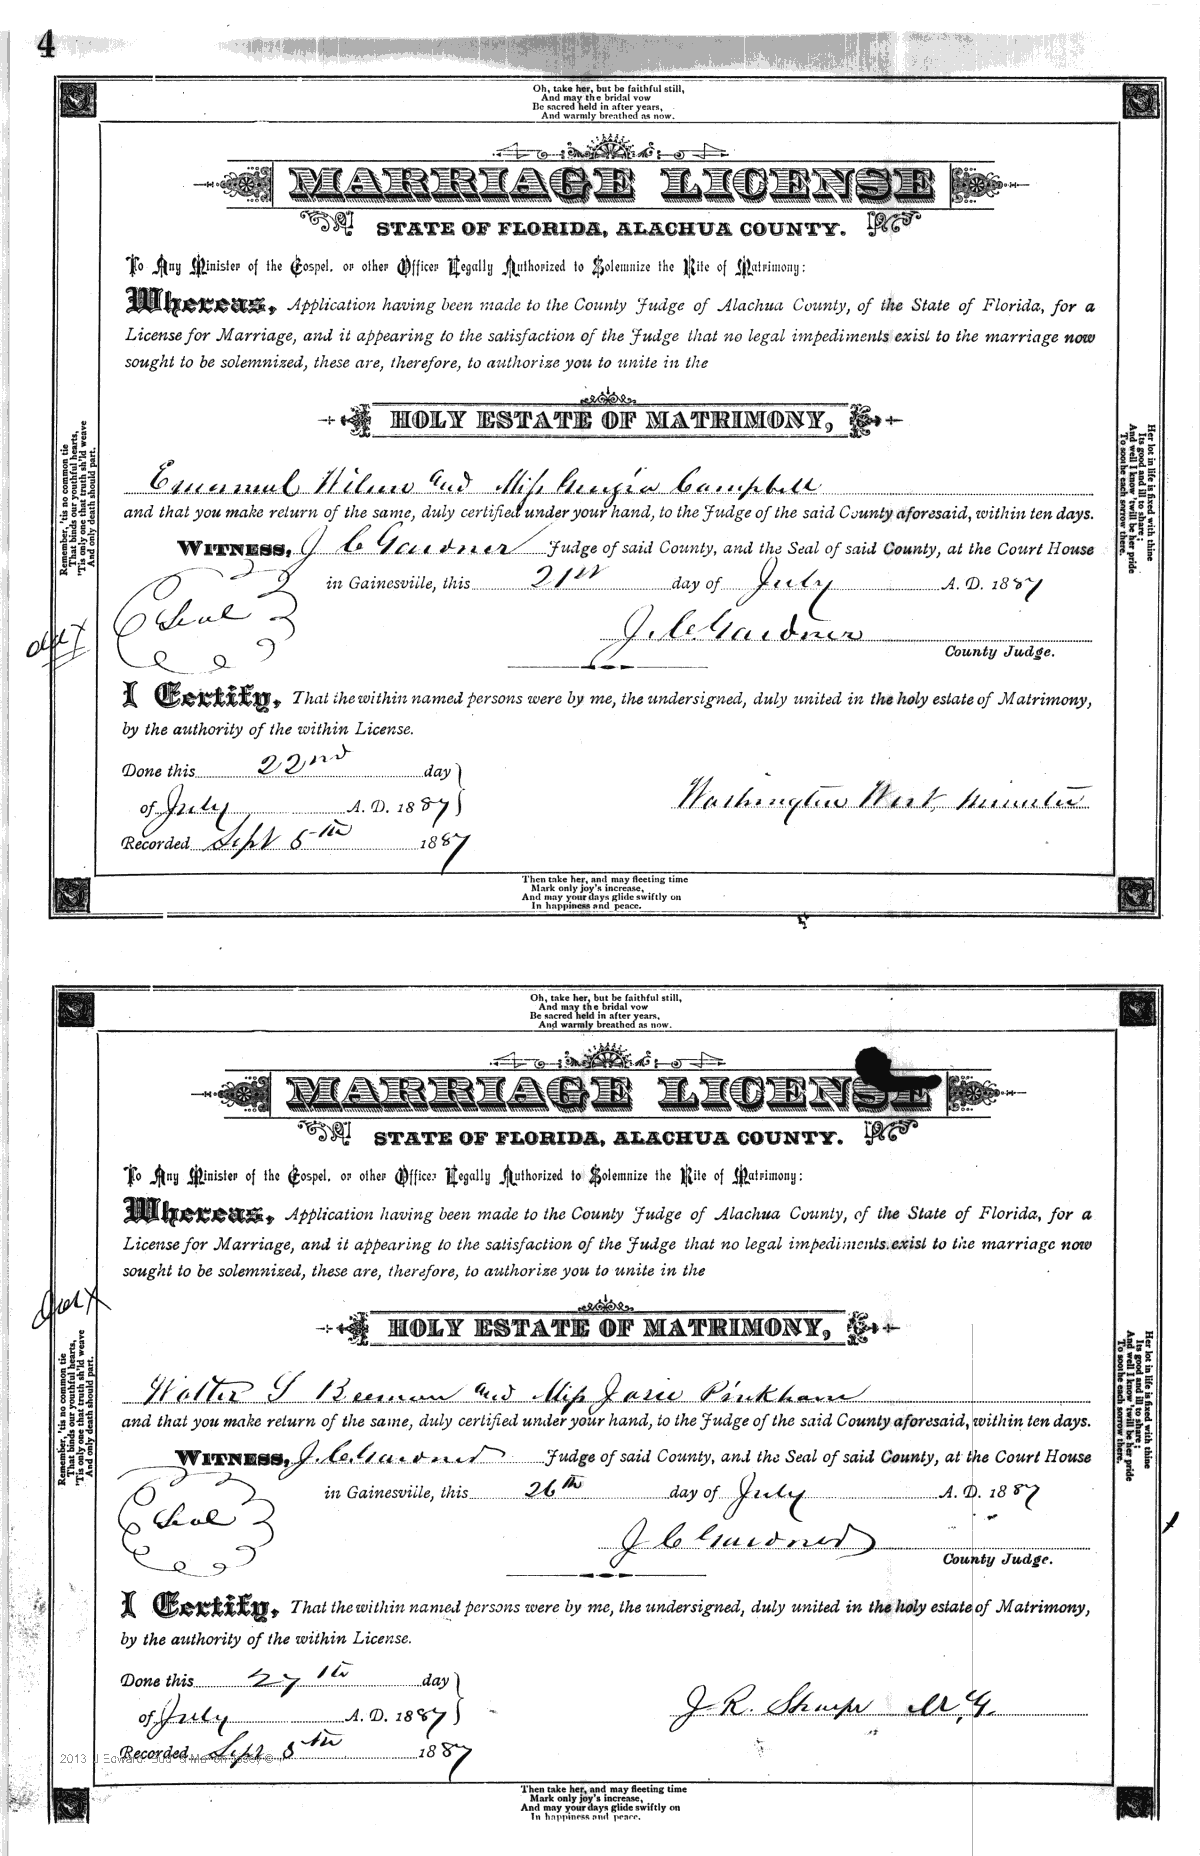 4
Oh, take her, but be faithful still,
And may the bridal vow
Be sacred held in after years,
And warmly breathed as now.
MARRIAGE LICENSE
STATE OF FLORIDA, ALACHUA COUNTY.
To Any Minister of the Gospel, or other Officer Legally Authorized to Solemnize the Rite of Matrimony:
Whereas, Application having been made to the County Judge of Alachua County, of the State of Florida, for a
License for Marriage, and it appearing to the satisfaction of the Judge that no legal impediments exist to the marriage now
sought to be solemnized, these are, therefore, to authorize you to unite in the
HOLY ESTATE OF MATRIMONY,
Emanuel Wilson and Miss Campbell
and that you make return of the same, duly certified under your hand, to the Judge of the said County aforesaid, within ten days.
WITNESS, J C Gardner Judge of said County, and the Seal of said County, at the Court House
in Gainesville, this 21st day of July A. D. 1887
Seal
J. C. Gardner
County Judge.
I Certify, That the within named persons were by me, the undersigned, duly united in the holy estate of Matrimony,
by the authority of the within License.
Done this 22nd day
of July A. D. 1887
Washington West, minister
Recorded Sept 5th 1887
Remember, 'tis no common tie
That binds our youthful hearts,
'Tis only one that truth sh'ld weave
And only death should part.
Her lot in life is fixed with thine
Its good and ill to share;
And well I know 'twill be her pride
To soothe each sorrow there.
Then take her, and may fleeting time
Mark only joy's increase,
And may your days glide swiftly on
In happiness and peace.
Oh, take her, but be faithful still,
And may the bridal vow
Be sacred held in after years,
And warmly breathed as now.
MARRIAGE LICENSE
STATE OF FLORIDA, ALACHUA COUNTY.
To Any Minister of the Gospel, or other Officer Legally Authorized to Solemnize the Rite of Matrimony:
Whereas, Application having been made to the County Judge of Alachua County, of the State of Florida, for a
License for Marriage, and it appearing to the satisfaction of the Judge that no legal impediments exist to the marriage now
sought to be solemnized, these are, therefore, to authorize you to unite in the
HOLY ESTATE OF MATRIMONY,
Walter S Beeman and Miss Josie Pinkham
and that you make return of the same, duly certified under your hand, to the Judge of the said County aforesaid, within ten days.
WITNESS, J. C. Gardner Judge of said County, and the Seal of said County, at the Court House
in Gainesville, this 26th day of July A. D. 1887
Seal
J C Gardner
County Judge.
I Certify, That the within named persons were by me, the undersigned, duly united in the holy estate of Matrimony,
by the authority of the within License.
Done this 27th day
of July A. D. 1887
J. R. Sharpe M. G.
Recorded Sept 5th 1887
Remember, 'tis no common tie
That binds our youthful hearts,
'Tis only one that truth sh'ld weave
And only death should part.
Her lot in life is fixed with thine
Its good and ill to share;
And well I know 'twill be her pride
To soothe each sorrow there.
Then take her, and may fleeting time
Mark only joy's increase,
And may your days glide swiftly on
In happiness and peace.